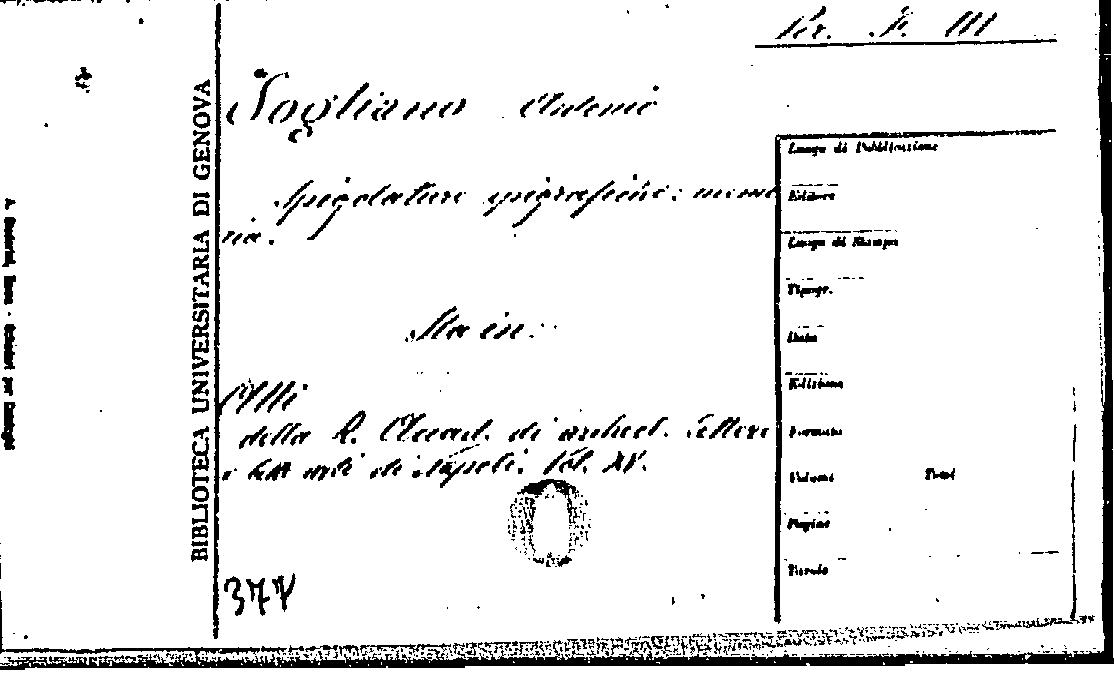 Per. F. III
Sogliano Antonio
Spigolature epigrafiche: memo
ria.
Sta in:
Atti
della R. Accad. di archeol. lettere
e belle arti di Napoli. Vol. XV.
377
BIBLIOTECA UNIVERSITARIA DI GENOVA
Luogo di Pubblicazione
Editore
Luogo di Stampa
Tipogr.
Data
Edizione
Formato
Volumi
Pagine